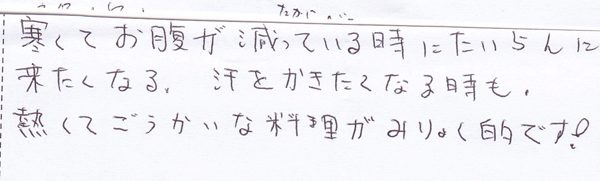 寒くてお腹が減っている時にたいらんに
来たくなる。汗をかきたくなる時も。
熱くてごうかいな料理がみりょく的です!